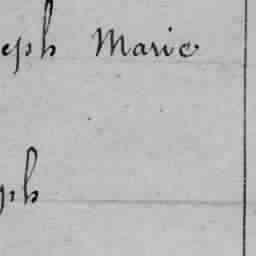 eph Marie
ph